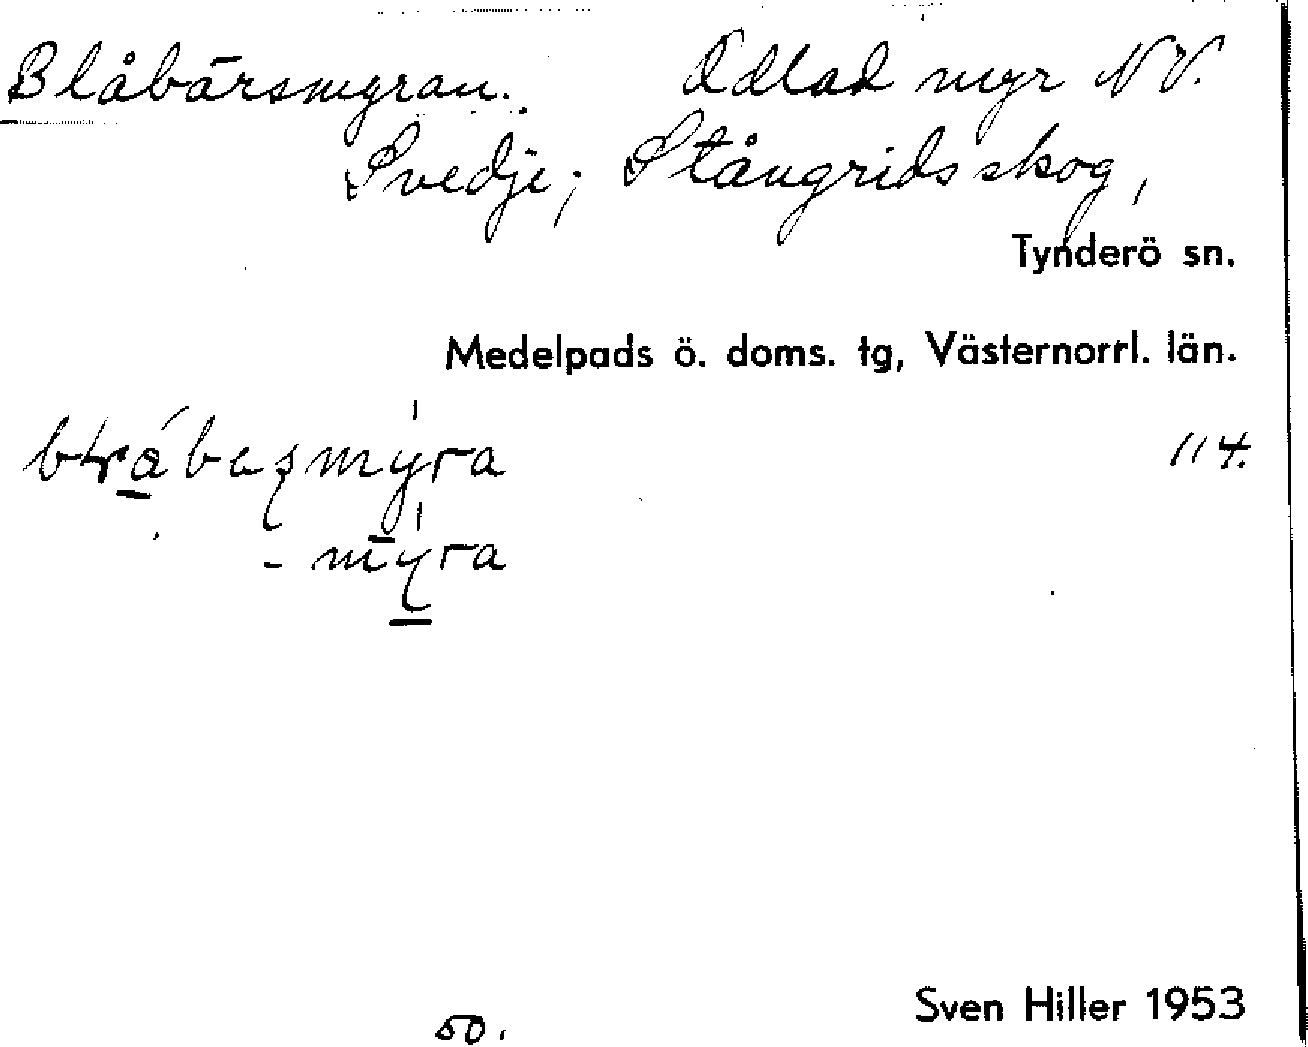 Blåbärsmyran. Odlad myr NV.
Svedje; Stångrids skog,
Tynderö sn.
Medelpads ö. doms. tg, Västernorrl. län.
114.
-mýra
50.
Sven Hiller 1953